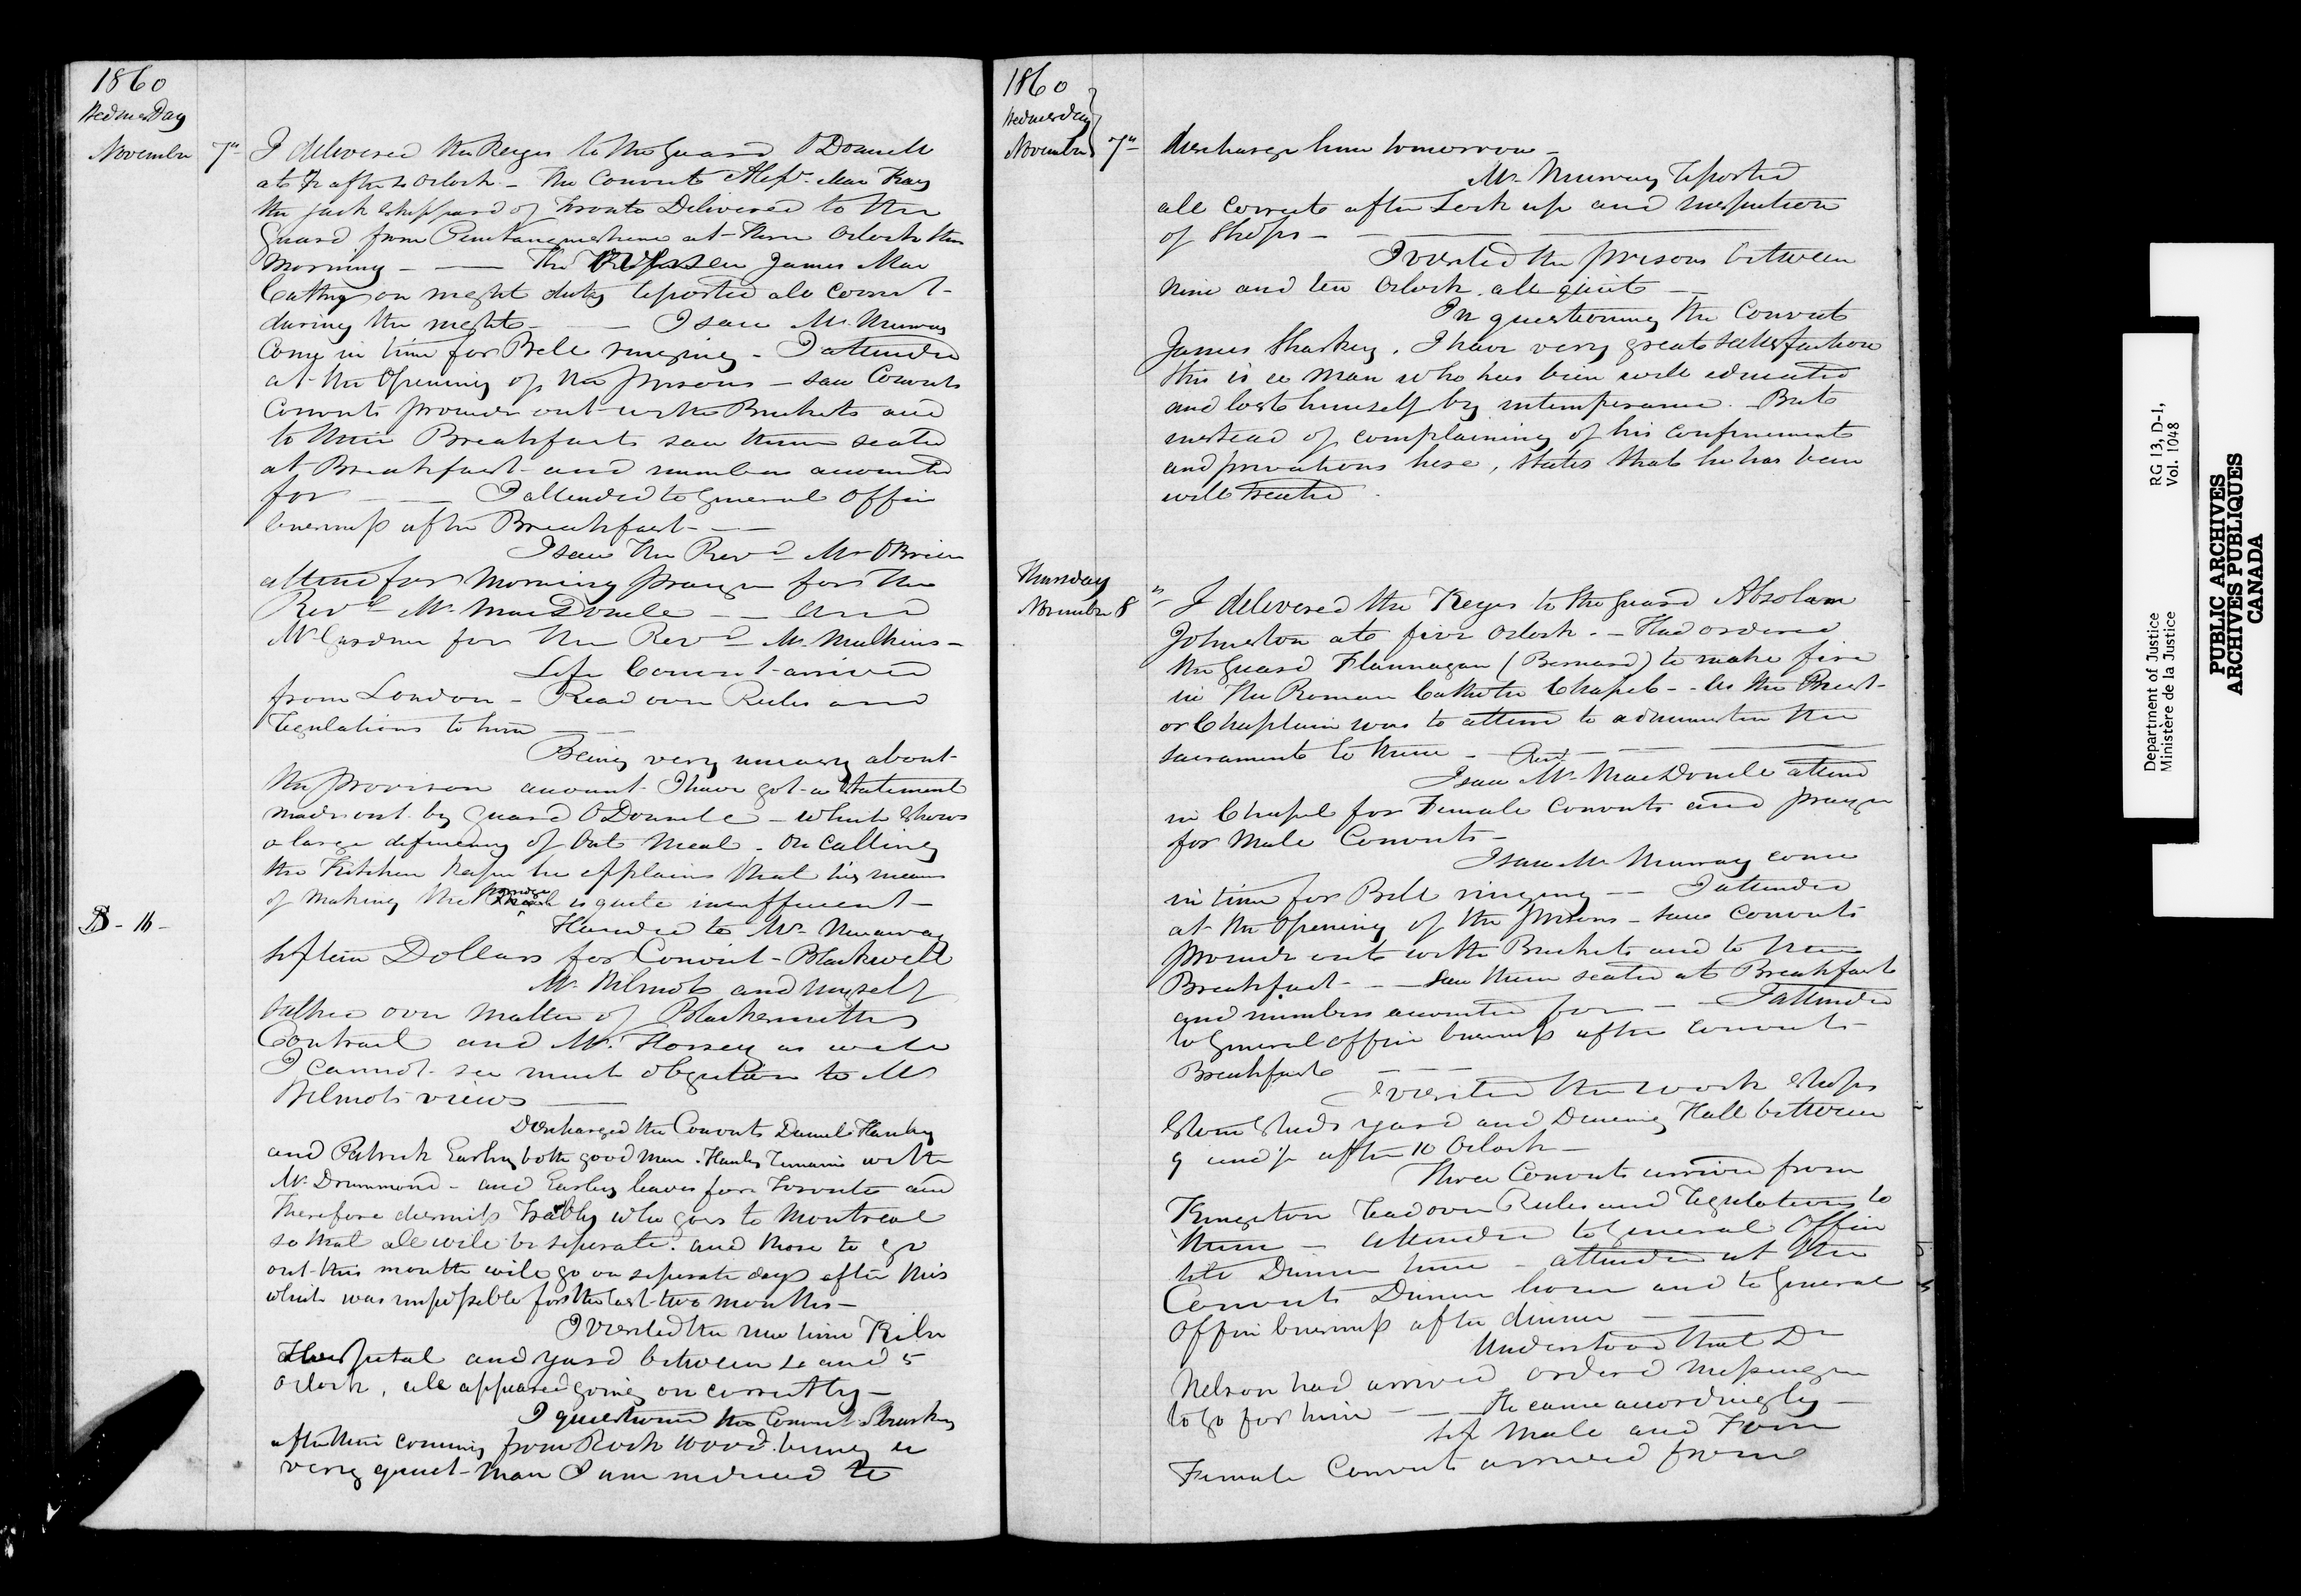 1860
Wednesday
November 7th
I delivered the Keys to the Guard O'Donnell
at ½ after 4 Oclock - The Convict Alexr. Mac Kay
the Jack Sheppard of Toronto Delivered to the
Guard from Penetanguishene at three Oclock this
morning - The Overseer James Mac
Carthy on night duty reported all correct
during the night - I saw Mr. Murray
Come in time for Bell ringing - I attended
at the Opening of the prisons - saw Convicts
Convicts proceed out with Buckets and
to their Breakfasts saw them seated
at Breakfast and numbers accounted
for - I attended to General Office
business after Breakfast -
I saw the Revd. Mr OBrien
attend for Morning prayer for the
Revd Mr. MacDonell - and
Mr Gardner for the Revd Mr. Mulkins -
Life Convict arrived
from London - Read over Rules and
regulations to him
Being very uneasy about
the provision account I have got a statement
made out by Guard ODonnell - which shows
a large deficiency of Oat Meal - On calling
the Kitchen Keeper he explains that his means
of making the porridge is quite insufficient -
Handed to Mr. Murray
fifteen Dollars for Convict - Blackwell
Mr. Wilmot and myself
talked over matter of Blacksmiths
Contract and Mr. Horsey as well
I cannot see much objection to Mr
Wilmots views
Discharged the Convicts Daniel Hanley
and Patrick Earley both good men. Hanley remains with
Mr. Drummond - and Earley leaves for Toronto and
therefore dismiss who goes to Montreal
so that all will be seperate. and those to go
out this month will go on seperate days after this
which was impossible for the last two months -
I visited the new lime Kiln
Hospital and yard between 4 and 5
Oclock, all appeared going on correctly -
I questioned the Convict Sharkey
after their coming from Rock Wood. being a
very quiet man I am induced to
1860
Wednesday
November 7th
discharge him tomorrow -
Mr. Murray reported
all correct after Lock up and inspection
of Shops -
I visited the prisons between
nine and ten Oclock, all quiet
On questioning the Convict
James Sharkey. I have very great satisfaction
this is a man who has been well educated
and lost himself by intemperance. But
instead of complaining of his confinement
and privations here, states that he has been
well treated.
Thursday
November 8th
I delivered the Keys to the Guard Absolam
Johnston at five Oclock. - Had ordered
the Guard Flannagan (Bernard) to make fire
in the Roman Catholic Chapel - as the Priest
or Chaplain was to attend to administer the
sacraments to them -
Revd
I saw Mr. MacDonell attend
in Chapel for Female Convicts and prayer
for Male Convicts -
I saw Mr Murray come
in time for Bell ringing - I attended
at the Opening of the prisons - saw Convicts
proceed out with Buckets and to their
Breakfast - saw them seated at Breakfast
and numbers accounted for - I attended
to General Office business after convicts
Breakfast
I visited the work Shops
Stone Sheds yard and Dining Hall between
9 and ½ after 10 Oclock -
Three Convicts arrived from
Kingston read over Rules and regulations to
them - attended to General Office
till Dinner time - attended at the
Convicts Dinner hour and to General
Office business after dinner
Understood that Dr
Nelson had arrived ordered messenger
to go for him - He came accordingly -
Six Male and Four
Female Convicts arrived from
Department of Justice
Ministère de la Justice
RG 13, D-1,
Vol. 1048
PUBLIC ARCHIVES
ARCHIVES PUBLIQUES
CANADA